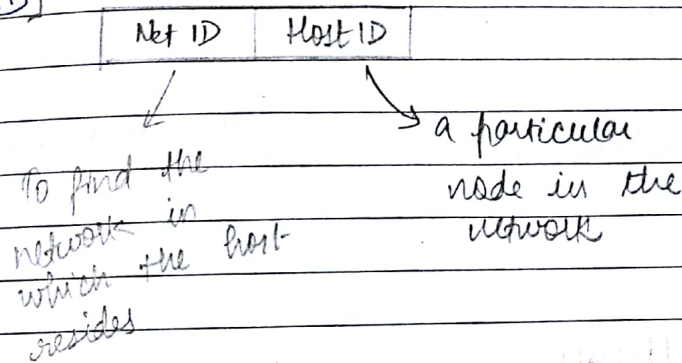 Net ID Host ID
To find the
network in
which the host
resides
a particular
node in the
network